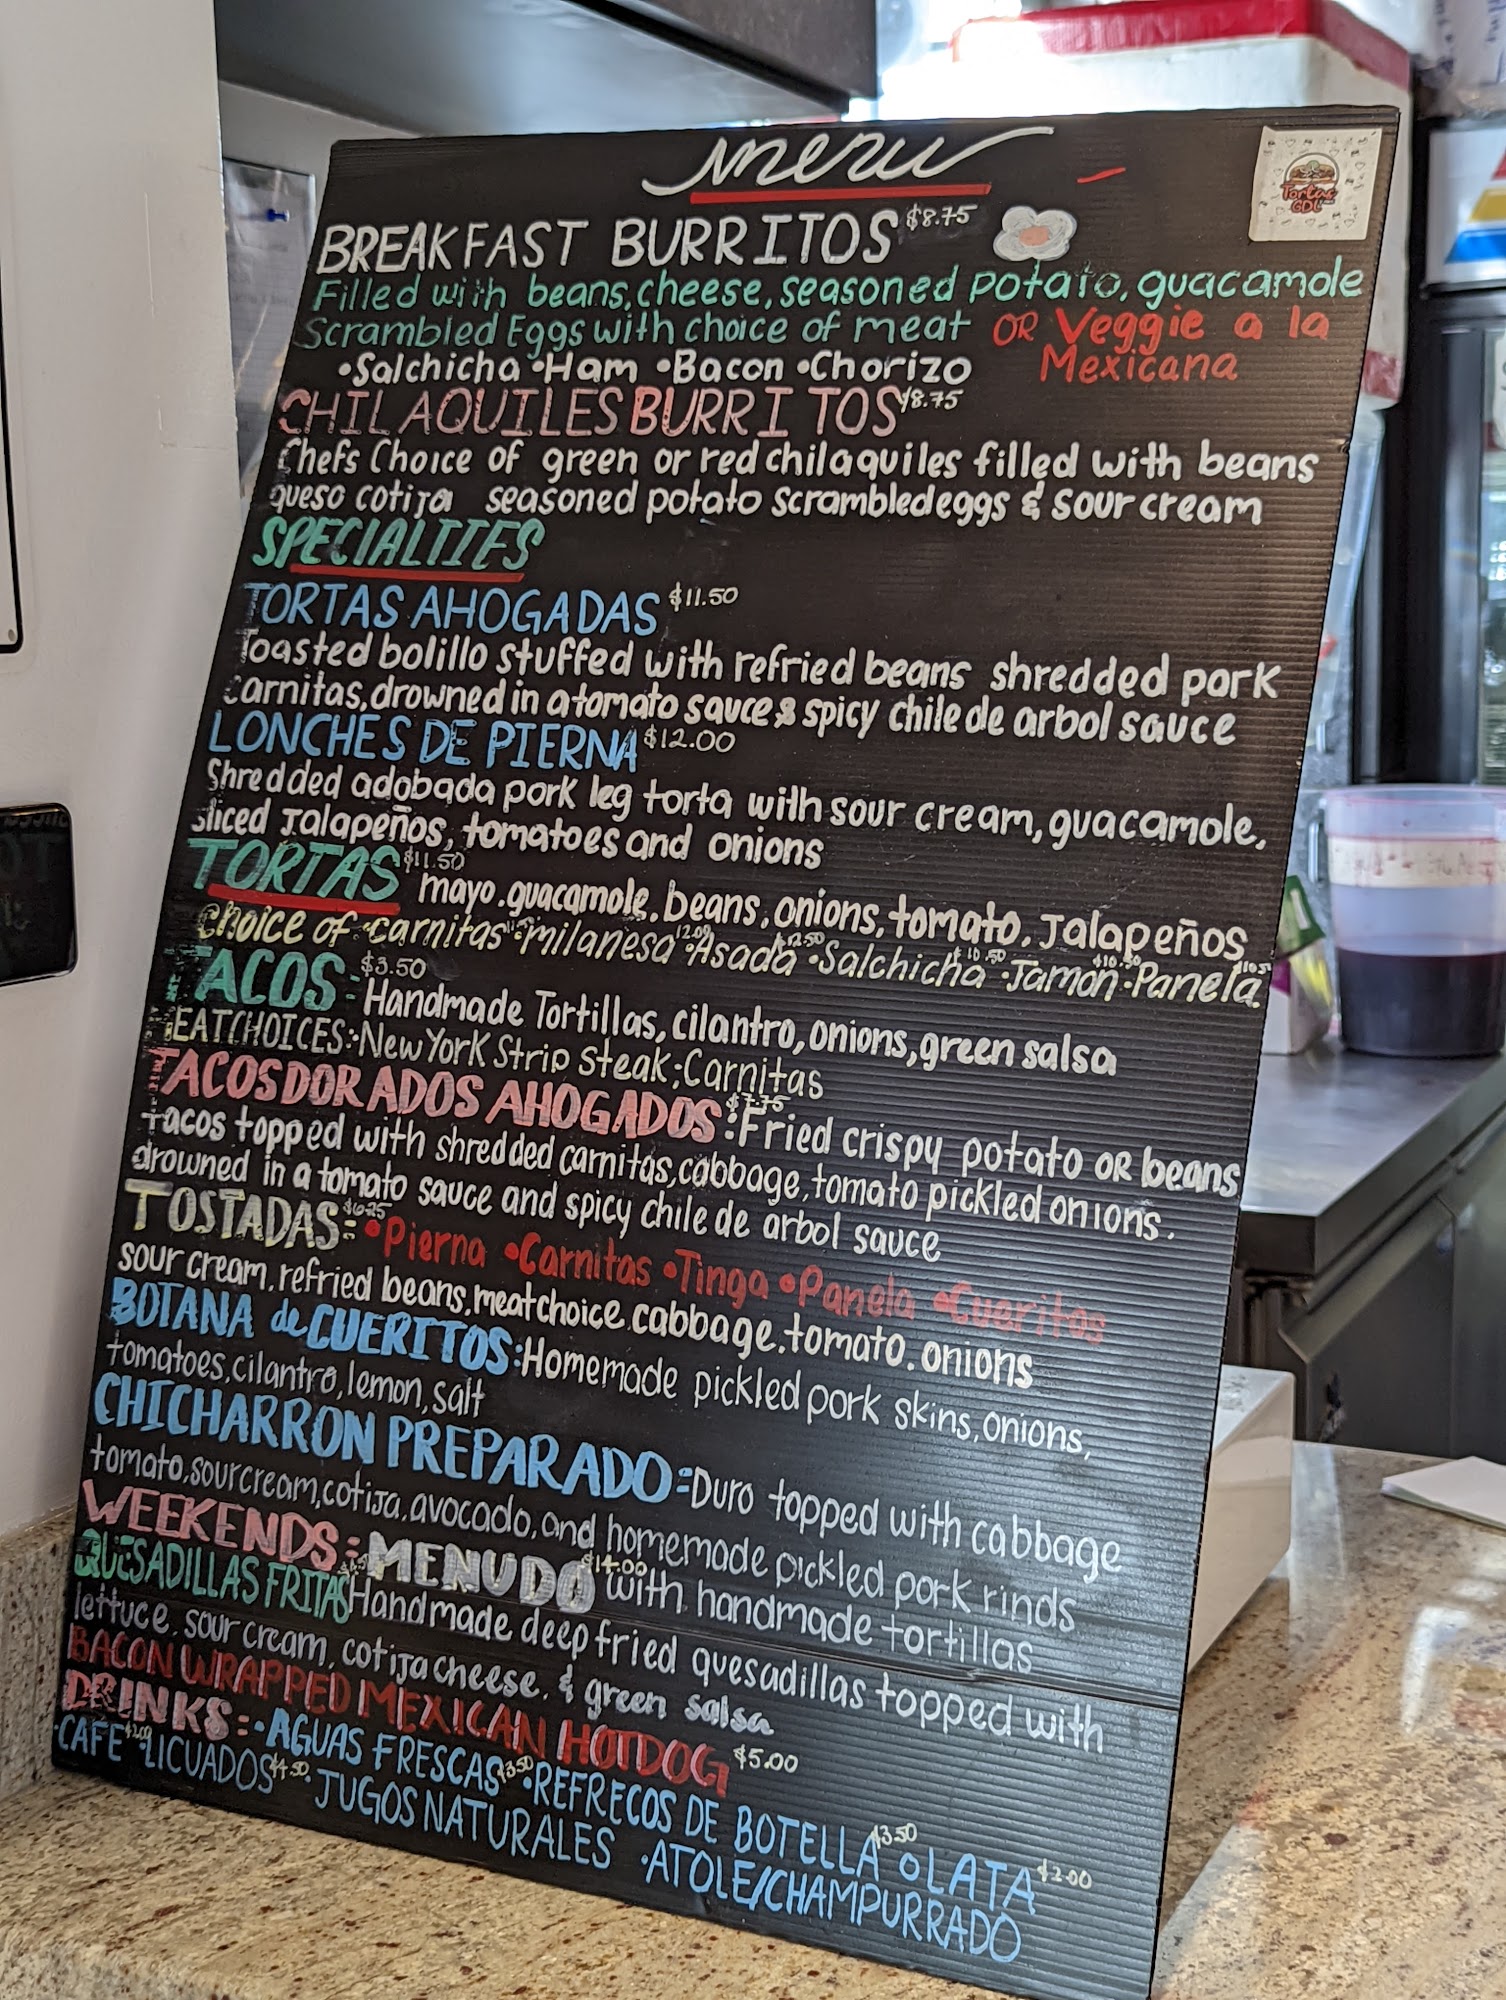 menu
Tortas
GDL
BREAKFAST BURRITOS $8.75
Filled with beans, cheese, seasoned potato, guacamole
Scrambled Eggs with choice of meat OR Veggie a la
Mexicana
•Salchicha •Ham •Bacon •Chorizo
CHILAQUILES BURRITOS $8.75
Chefs Choice of green or red chilaquiles filled with beans
queso cotija seasoned potato scrambled eggs & sour cream
SPECIALTIES
TORTAS AHOGADAS $11.50
Toasted bolillo stuffed with refried beans shredded pork
carnitas, drowned in a tomato sauce & spicy chile de arbol sauce
LONCHES DE PIERNA $12.00
Shredded adobada pork leg torta with sour cream, guacamole,
sliced Jalapeños, tomatoes and onions
TORTAS $11.50 mayo. guacamole. beans, onions, tomato. Jalapeños
Choice of •carnitas •milanesa 12.00 •Asada $12.50 •Salchicha $10.50 •Jamón $10.50 •Panela
TACOS: $3.50 Handmade Tortillas, cilantro, onions, green salsa
MEAT CHOICES: •New York Strip Steak •Carnitas
TACOS DORADOS AHOGADOS: $7.75 Fried crispy potato OR beans
tacos topped with shredded carnitas, cabbage, tomato pickled onions.
drowned in a tomato sauce and spicy chile de arbol sauce
TOSTADAS: $6.25 •Pierna •Carnitas •Tinga •Panela •Cueritos
sour cream, refried beans, meat choice cabbage. tomato. onions
BOTANA de CUERITOS: Homemade pickled pork skins, onions,
tomatoes, cilantro, lemon, salt
CHICHARRON PREPARADO: Duro topped with cabbage
tomato, sour cream, cotija, avocado, and homemade pickled pork rinds
WEEKENDS: MENUDO $14.00 with handmade tortillas
QUESADILLAS FRITAS Handmade deep fried quesadillas topped with
lettuce, sour cream, cotija cheese, & green salsa
BACON WRAPPED MEXICAN HOTDOG $5.00
DRINKS: •AGUAS FRESCAS $3.50 •REFRECOS DE BOTELLA $3.50 o LATA $2.00
•CAFE $2.00 •LICUADOS $4.50 • JUGOS NATURALES •ATOLE/CHAMPURRADO